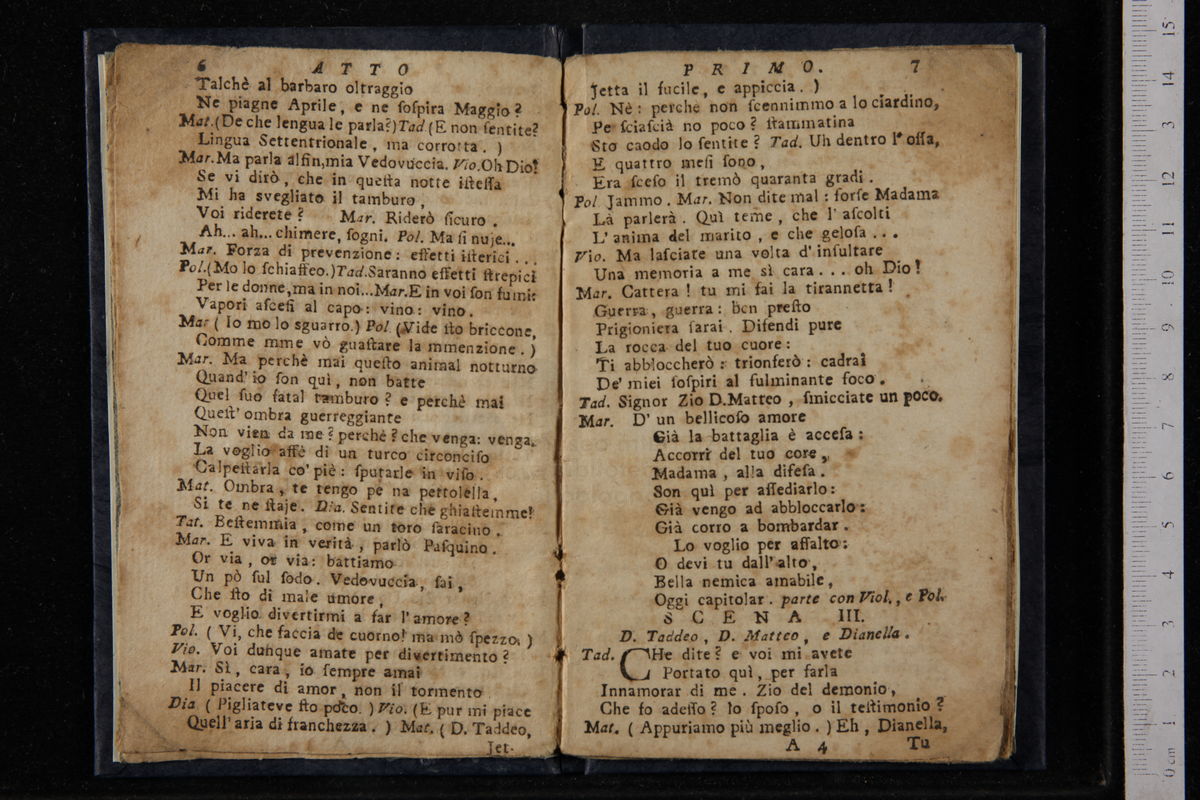 6 ATTO
Talchè al barbaro oltraggio
Ne piagne Aprile, e ne ſoſpira Maggio?
Mat.(De che lengua le parla?)Tad.(E non ſentite?
Lingua Settentrionale, ma corrotta.)
Mar.Ma parla alfin,mia Vedovuccia. Vio.Oh Dio!
Se vi dirò, che in queſta notte iſteſſa
Mi ha svegliato il tamburo,
Voi riderete? Mar. Riderò ſicuro.
Ah... ah... chimere, ſogni. Pol. Ma ſi nuje...
Mar. Forza di prevenzione: effetti iſterici...
Pol.(Mo lo ſchiaffeo.)Tad.Saranno effetti ſtrepici
Per le donne,ma in noi...Mar.E in voi ſon fumi:
Vapori aſceſi al capo: vino: vino.
Mar ( Io mo lo sguarro.) Pol. (Vide ſto briccone,
Comme mme vò guaſtare la mmenzione.)
Mar. Ma perchè mai queſto animal notturno
Quand' io ſon quì, non batte
Quel ſuo fatal tamburo? e perchè mai
Queſt' ombra guerreggiante
Non vien da me? perchè? che venga: venga.
La voglio affè di un turco circonciſo
Calpeſtarla co' piè: ſputarle in viſo.
Mat. Ombra, te tengo pe na pettolella,
Si te ne ſtaje. Dia. Sentite che ghiaſtemme!
Tat. Beſtemmia, come un toro ſaracino.
Mar. E viva in verità, parlò Paſquino.
Or via, or via: battiamo
Un pò ſul ſodo. Vedovuccia, ſai,
Che ſto di male umore,
E voglio divertirmi a far l' amore?
Pol. ( Vi, che faccia de cuorno! ma mò ſpezzo.)
Vio. Voi dunque amate per divertimento?
Mar. Sì, cara, io ſempre amai
Il piacere di amor, non il tormento
Dia ( Pigliateve ſto poco.) Vio. (E pur mi piace
Quell' aria di franchezza.) Mat. ( D. Taddeo,
Jet-
PRIMO. 7
Jetta il fucile, e appiccia.)
Pol. Nè: perchè non ſcennimmo a lo ciardino,
Pe ſciaſcià no poco? ſtammatina
Sto caodo lo ſentite? Tad. Uh dentro l' oſſa,
E quattro meſi ſono,
Era ſceſo il tremò quaranta gradi.
Pol Jammo. Mar. Non dite mal: forſe Madama
Là parlerà. Quì teme, che l' aſcolti
L' anima del marito, e che geloſa...
Vio. Ma laſciate una volta d' inſultare
Una memoria a me sì cara... oh Dio!
Mar. Cattera! tu mi fai la tirannetta!
Guerra, guerra: ben preſto
Prigioniera ſarai. Difendi pure
La rocca del tuo cuore:
Ti abbloccherò: trionferò: cadrai
De' miei ſoſpiri al fulminante foco.
Tad. Signor Zio D.Matteo, ſmicciate un poco.
Mar. D' un bellicoſo amore
Già la battaglia è acceſa:
Accorri del tuo core,
Madama, alla difeſa.
Son quì per aſſediarlo:
Già vengo ad abbloccarlo:
Già corro a bombardar.
Lo voglio per aſſalto:
O devi tu dall' alto,
Bella nemica amabile,
Oggi capitolar. parte con Viol., e Pol.
SCENA III.
D. Taddeo, D. Matteo, e Dianella.
Tad. CHe dite? e voi mi avete
Portato quì, per farla
Innamorar di me. Zio del demonio,
Che fo adeſſo? lo ſpoſo, o il teſtimonio?
Mat. ( Appuriamo più meglio.) Eh, Dianella,
A 4 Tu
0 cm 1 2 3 4 5 6 7 8 9 10 11 12 3 14 15